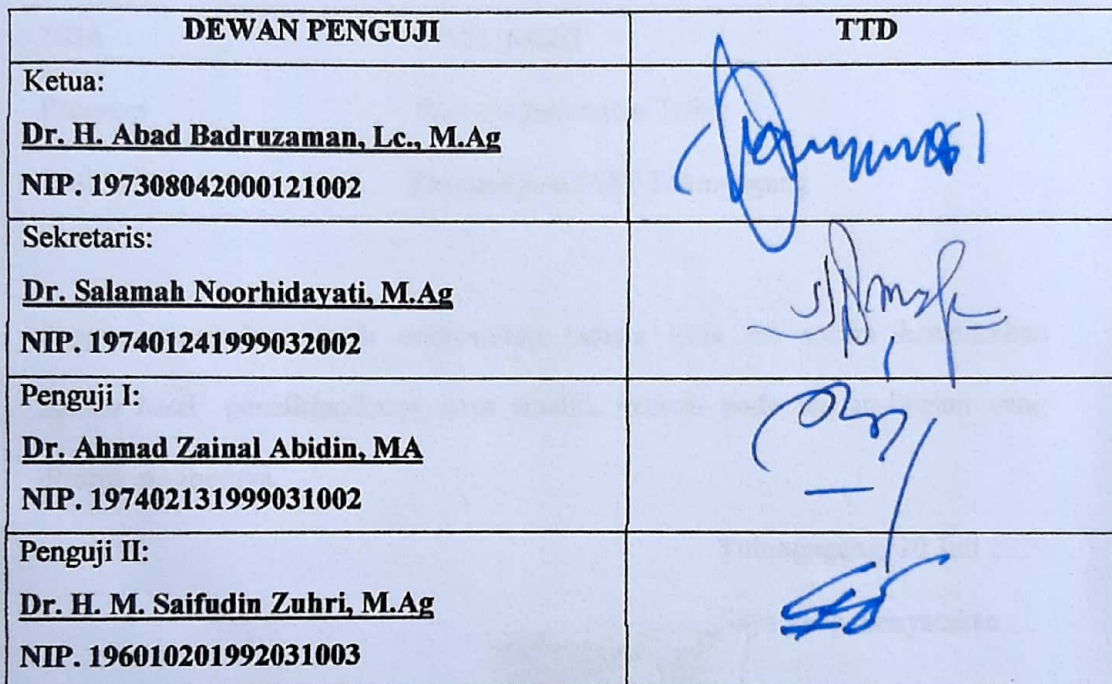 DEWAN PENGUJI TTD
Ketua:
Dr. H. Abad Badruzaman, Lc., M.Ag
NIP. 197308042000121002
Sekretaris:
Dr. Salamah Noorhidayati, M.Ag
NIP. 197401241999032002
Penguji I:
Dr. Ahmad Zainal Abidin, MA
NIP. 197402131999031002
Penguji II:
Dr. H. M. Saifudin Zuhri, M.Ag
NIP. 196010201992031003